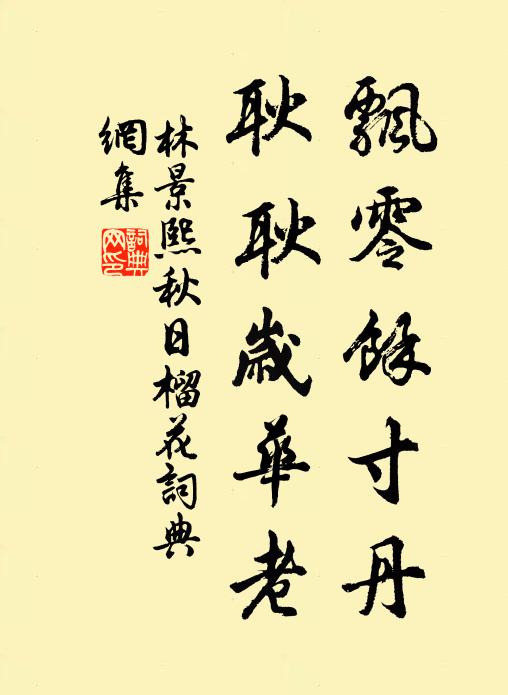 飄零餘寸丹
耿耿歲華老
林景熙秋日榴花詞典
網集
詞典
网印